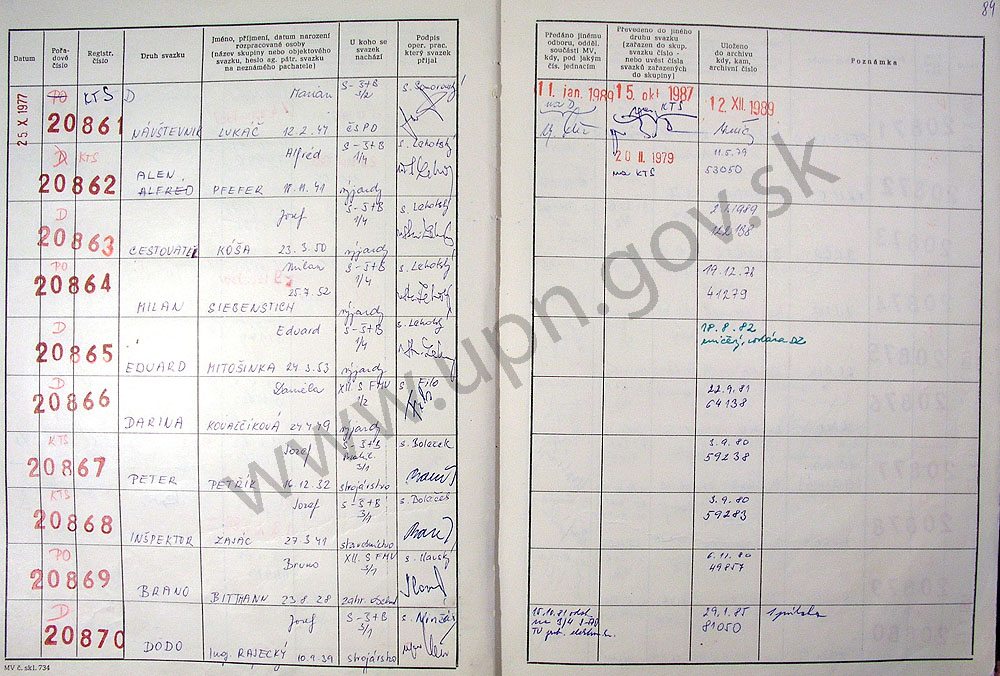 84
Datum
Pořa-
dové
číslo
Registr.
číslo
Druh svazku
Jméno, příjmení, datum narození
rozpracované osoby
(název skupiny nebo objektového
svazku, heslo ag. pátr. svazku
na neznámého pachatele)
U koho se
svazek
nachází
Podpis
oper. prac.
který svazek
přijal
Předáno jinému
odboru, odděl.
součásti MV,
kdy, pod jakým
čís. jednacím
Převedeno do jiného
druhu svazku
(zařazen do skup.
svazku číslo -
nebo uvést čísla
svazků zařazených
do skupiny)
Uloženo
do archivu
kdy, kam,
archivní číslo
Poznámka
25 X 1977
PO KTS D Marián S-Š+B
1/2
20861 NÁVŠTEVNIK LUKÁČ 12.2.47 ČSPD
11. jan. 1989 15. okt 1987 12 XII. 1989
KTS
D KTS Alfréd S-Š+B s. Lehotský
1/4
20862 ALEN
ALFRÉD PFEFER 18.11.41 výjazdy
20 II. 1979 11.5.79
na KTS 53050
D Jozef S-Š+B s. Lehotský
1/4
20863 CESTOVATEL KÓŠA 23.3.50 výjazdy
PO Milan S-Š+B s. Lehotský
1/4
20864 25.7.52
MILAN SIEBENSTICH výjazdy
19.12.78
41279
D Eduard S-Š+B s. Lehotský
1/4
20865 EDUARD MITOŠINKA 24.3.53 výjazdy
18.8.82
D Daniela XII. S FMV s. Filo
1/2
20866 DARINA KOVALČÍKOVÁ 24.4.49 výjazdy
22.9.81
64138
KTS Jozef S-Š+B
3/1
20867 PETER PETŘÍK 16.12.32 strojárstvo
3.9.80
59238
KTS Jozef S-Š+B
3/1
20868 INŠPEKTOR ZAJÁC 27.3.41
3.9.80
59283
PO Bruno XII. S FMV
3/1
20869 BRANO BITTMANN 23.8.28
6.11.80
49857
D Jozef S-Š+B
3/1
20870 DODO Ing. RAJECKÝ 10.9.39 strojárstvo
29.1.85
81050
MV č. skl. 734
www.upn.gov.sk